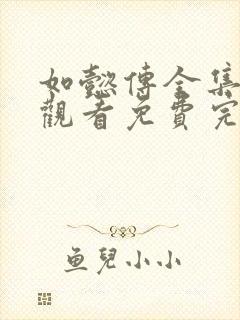 如懿傳全集
觀看免費完
鱼兒小小